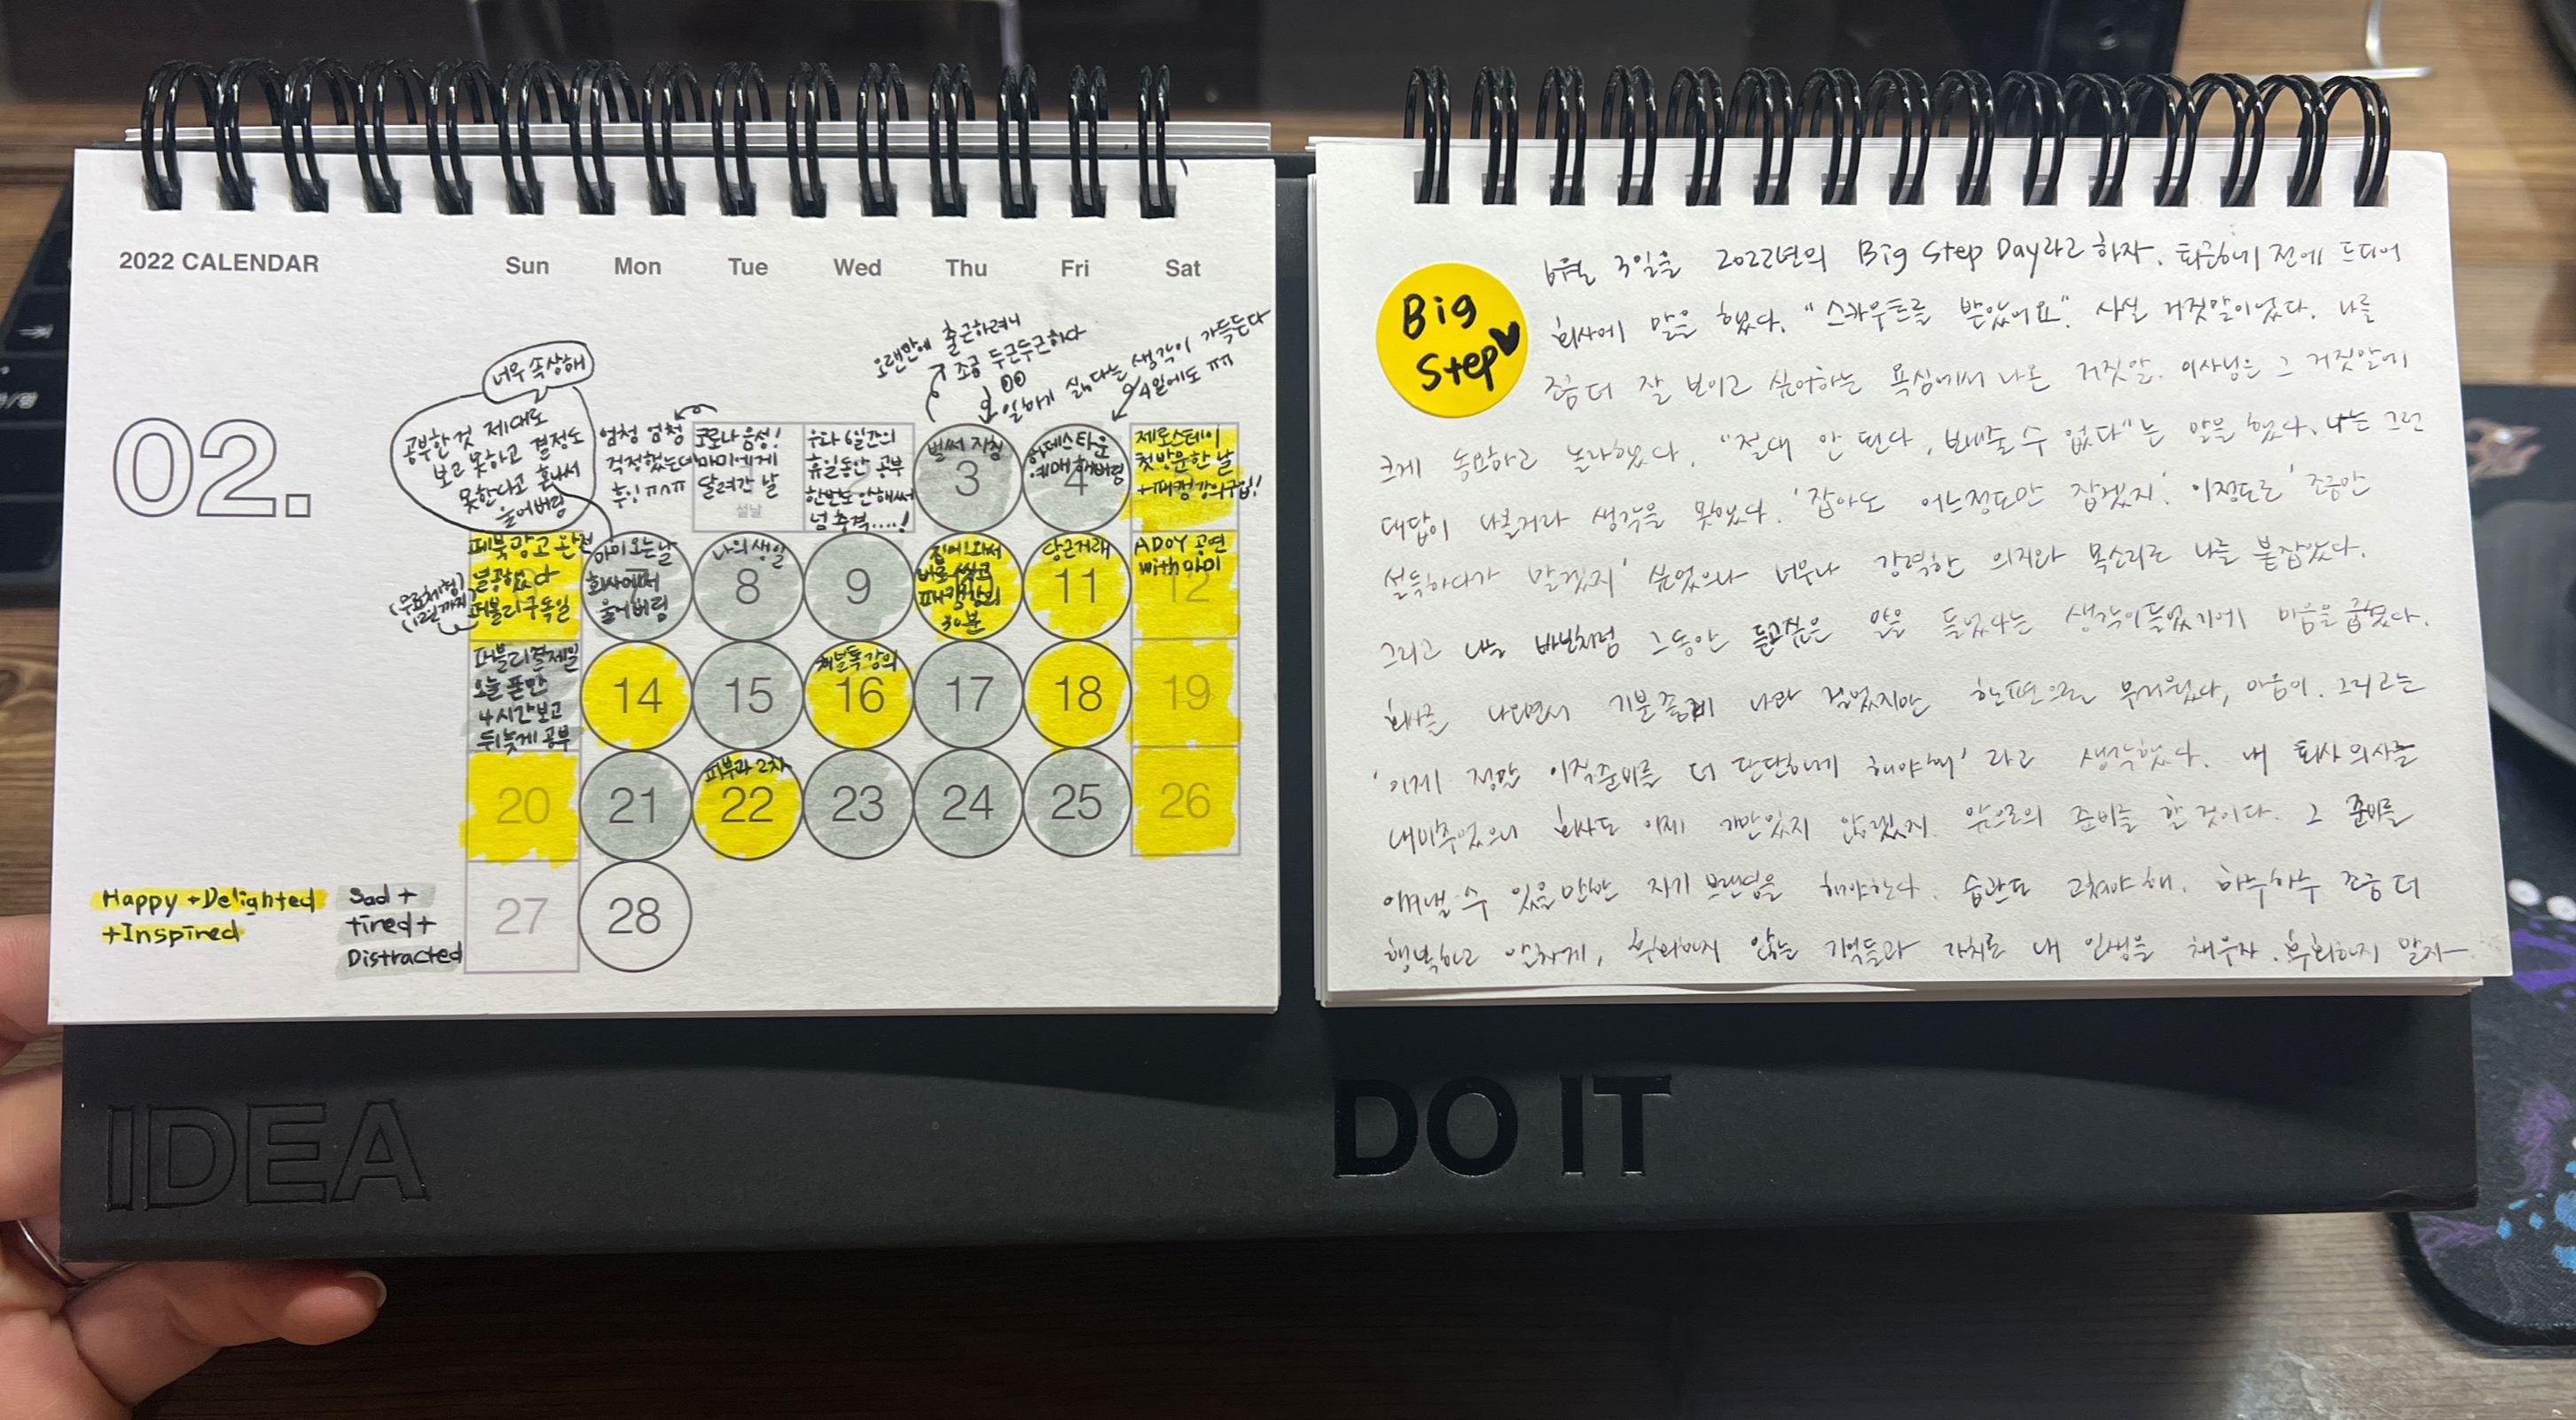 2022 CALENDAR
Sun Mon Tue Wed Thu Fri Sat
02.
오랜만에 출근하려니
조금 두근두근하다
일하기 싫다는 생각이 가득든다
4일에도 ㅠㅠ
너무 속상해
공부한 것 제대로
보고 못하고 결정도
못한다고 혼나서
울어버림
엄청 엄청
걱정했는데
후잉 ㅠㅅㅠ
코로나 음성!
마미에게
달려간 날
설날
우와 6일간의
휴일동안 공부
한번도 안해써
넘 충격....!
벌써 지침
3
하데스타운
예매 해버림
4
제로스테이
첫 방문한 날
+패캠 강의구입!
페북광고 완전
열공했다
퍼블리 구독일
(무료체험)
(12일까지)
마미 오는날
회사에서
울어버림
7
나의 생일
8
9
집에 와서
바로 씻고
패캠강의
30분
당근거래
11
ADOY 공연
with 마미
12
퍼블리결제일
오늘 폰만
4시간보고
뒤늦게 공부
14
15
채널톡 강의
16
17
18
19
20
21
피부과 2차
22
23
24
25
26
27
28
Happy + Delighted
+ Inspired
Sad +
tired +
Distracted
IDEA
Big
Step
6월 3일을 2022년의 Big Step Day라고 하자. 퇴근하기 전에 드디어
회사에 말을 했다. "스카우트를 받았어요". 사실 거짓말이었다. 나를
좀 더 잘 보이고 싶어하는 욕심에서 나온 거짓말. 이사님은 그 거짓말에
크게 동요하고 놀라했다. "절대 안 된다, 보내줄 수 없다"는 말을 했다. 나는 그런
대답이 나올거라 생각을 못했다. '잡아도 어느정도만 잡겠지'. 이정도로 '조금만
설득하다가 말겠지' 싶었으나 너무나 강력한 의지와 목소리로 나를 붙잡았다.
그리고 나는 바보처럼 그동안 듣고싶은 말을 들었다는 생각이들었기에 마음을 굽혔다.
회사를 나오면서 기분좋게 나와 걸었지만 한편으로는 무거웠다, 마음이. 그리고는
'이제 정말 이직준비를 더 단단하게 해야해' 라고 생각했다. 내 퇴사 의사를
내비추었으니 회사도 이제 가만있지 않겠지. 앞으로의 준비를 할 것이다. 그 준비를
이겨낼 수 있을만한 자기 브랜딩을 해야한다. 습관도 고쳐야 해. 하루하루 조금 더
행복하고 알차게, 후회하지 않는 기억들과 가치로 내 인생을 채우자. 후회하지 말자—
DO IT